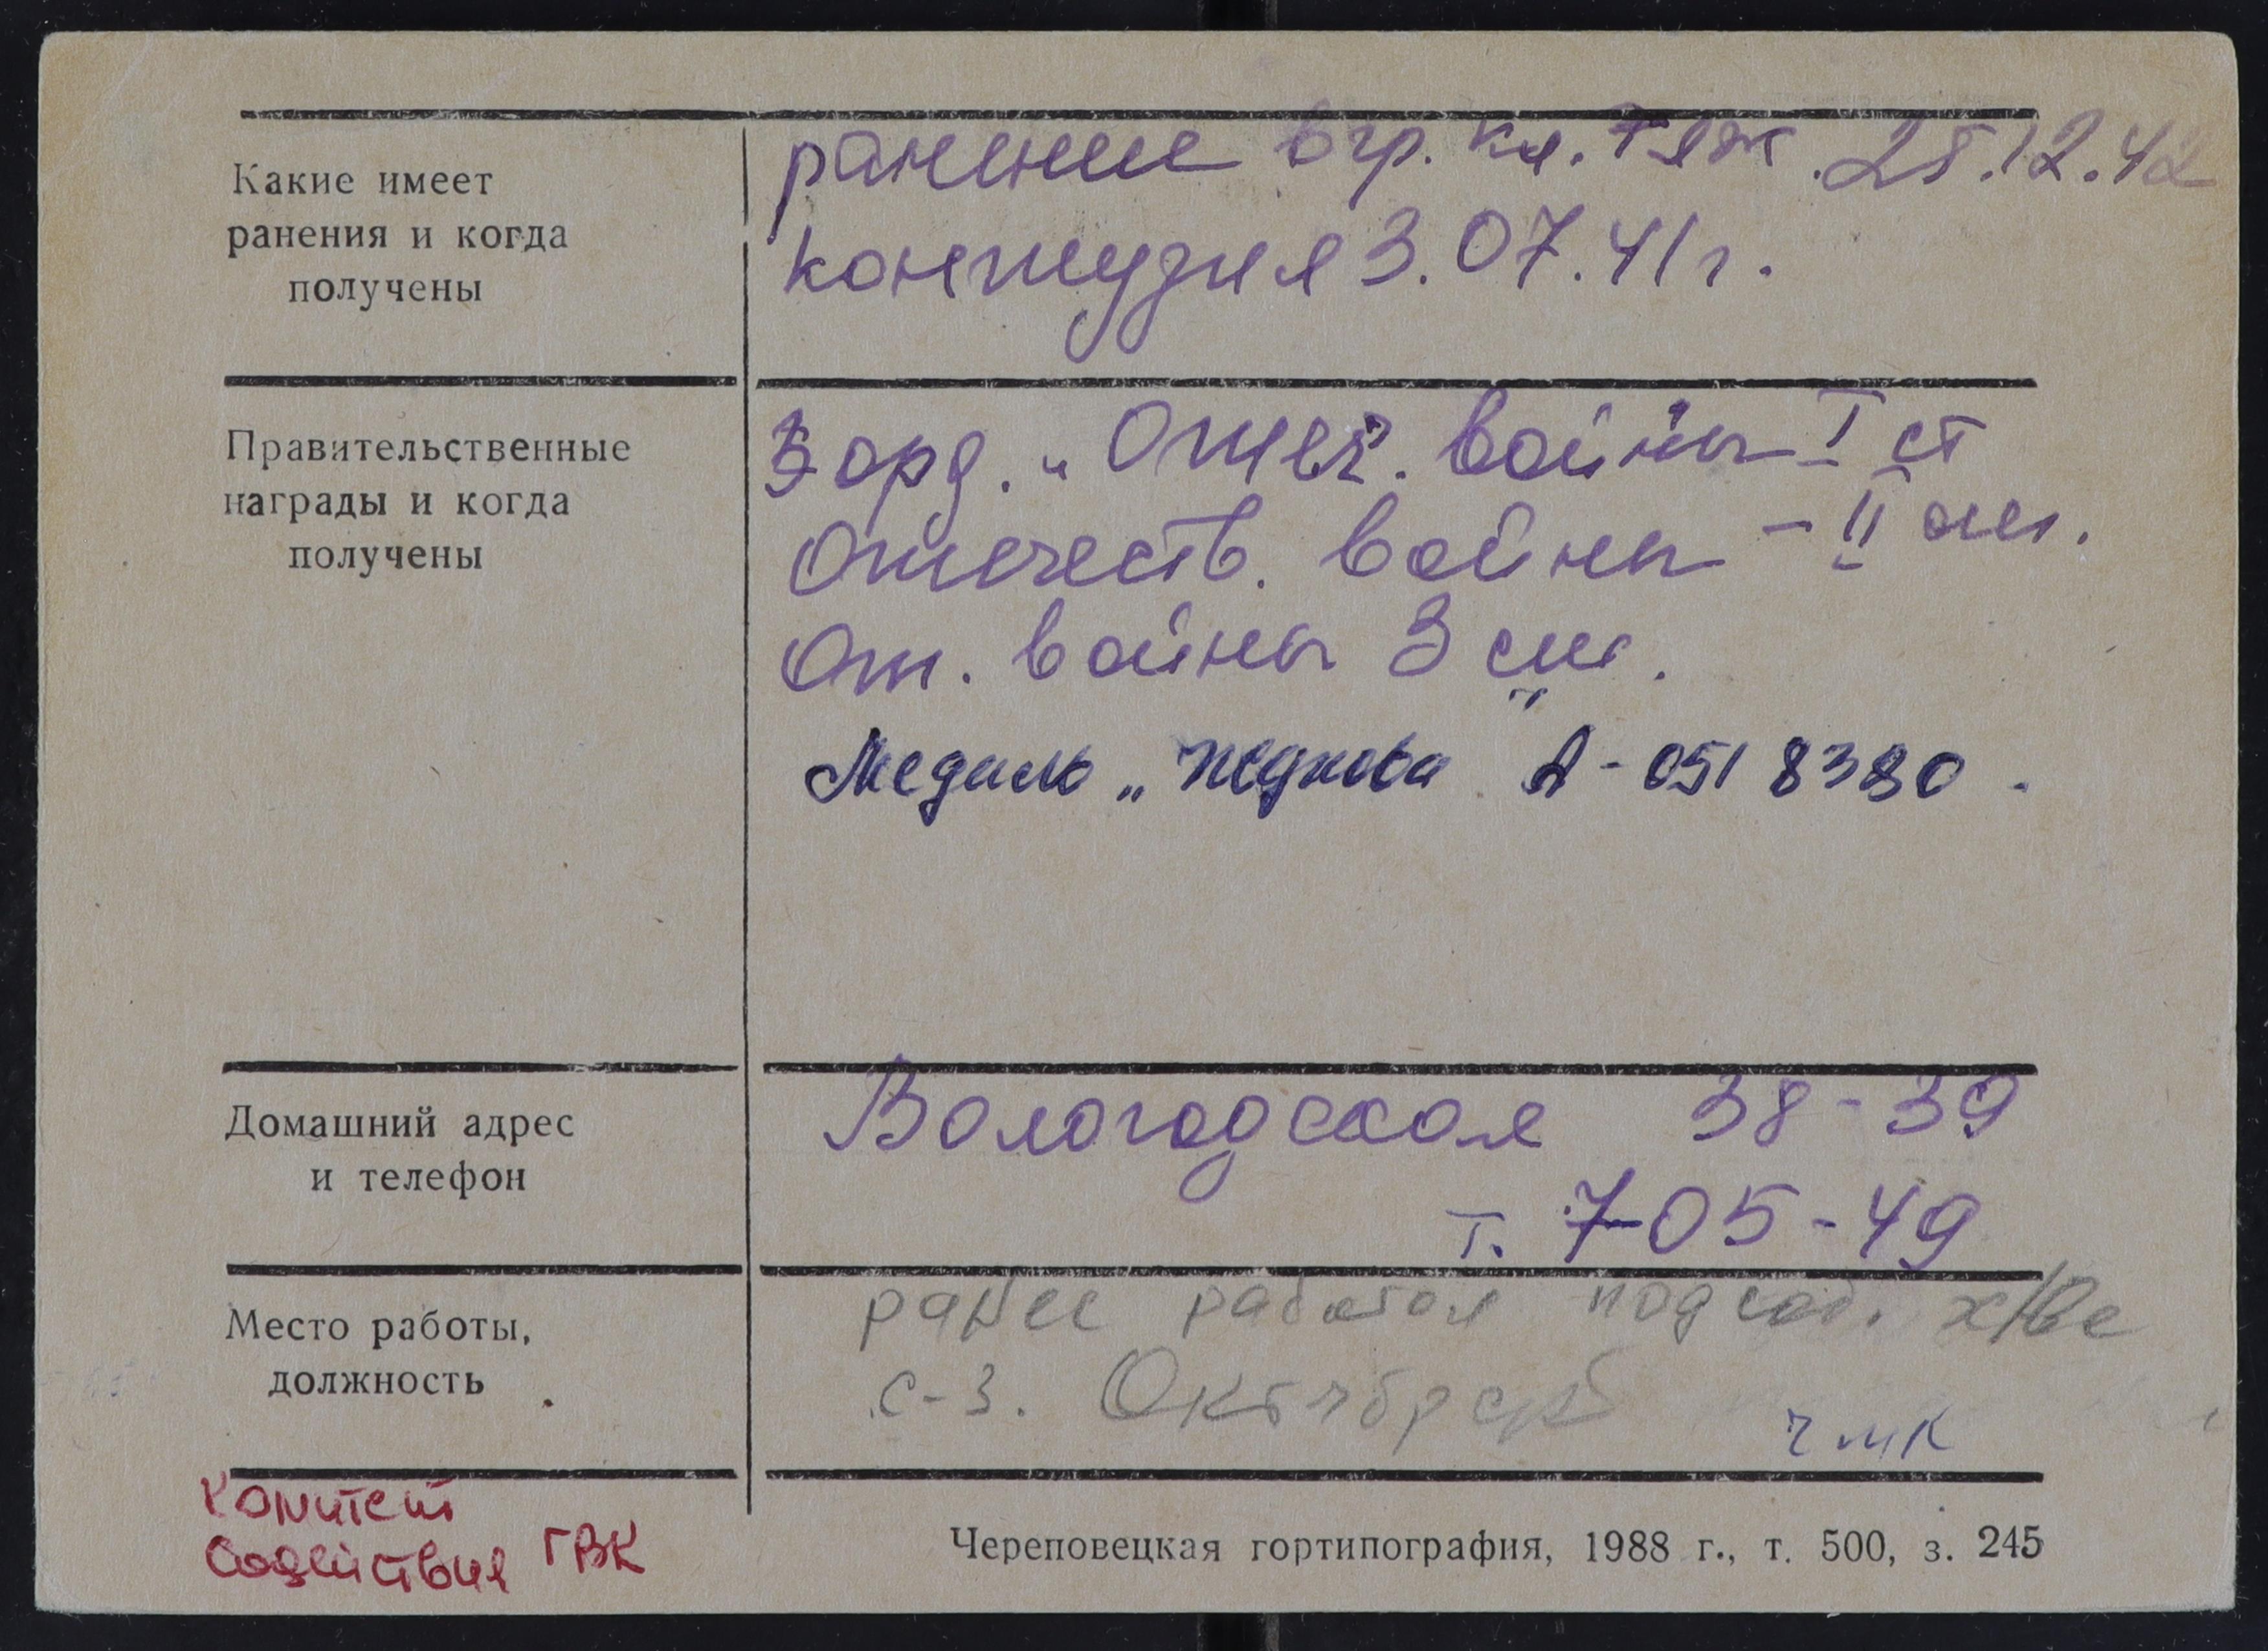 Какие имеет
ранения и когда
получены
ранение в гр. кл. тяж. 25.12.42
контузия 3.07.41 г.
Правительственные
награды и когда
получены
орд. „Отеч. войны I ст
Отечеств. войны – II ст.
От. войны 3 ст.
Медаль „Жукова" А - 051 8380.
Домашний адрес
и телефон
Вологодская 38-39
т. 7-05-49
Место работы,
должность
ранее работал подсоб. х/ве
с-з. Октябрьск
ЧМК
Комитет
содействия ГВК
Череповецкая гортипография, 1988 г., т. 500, з. 245